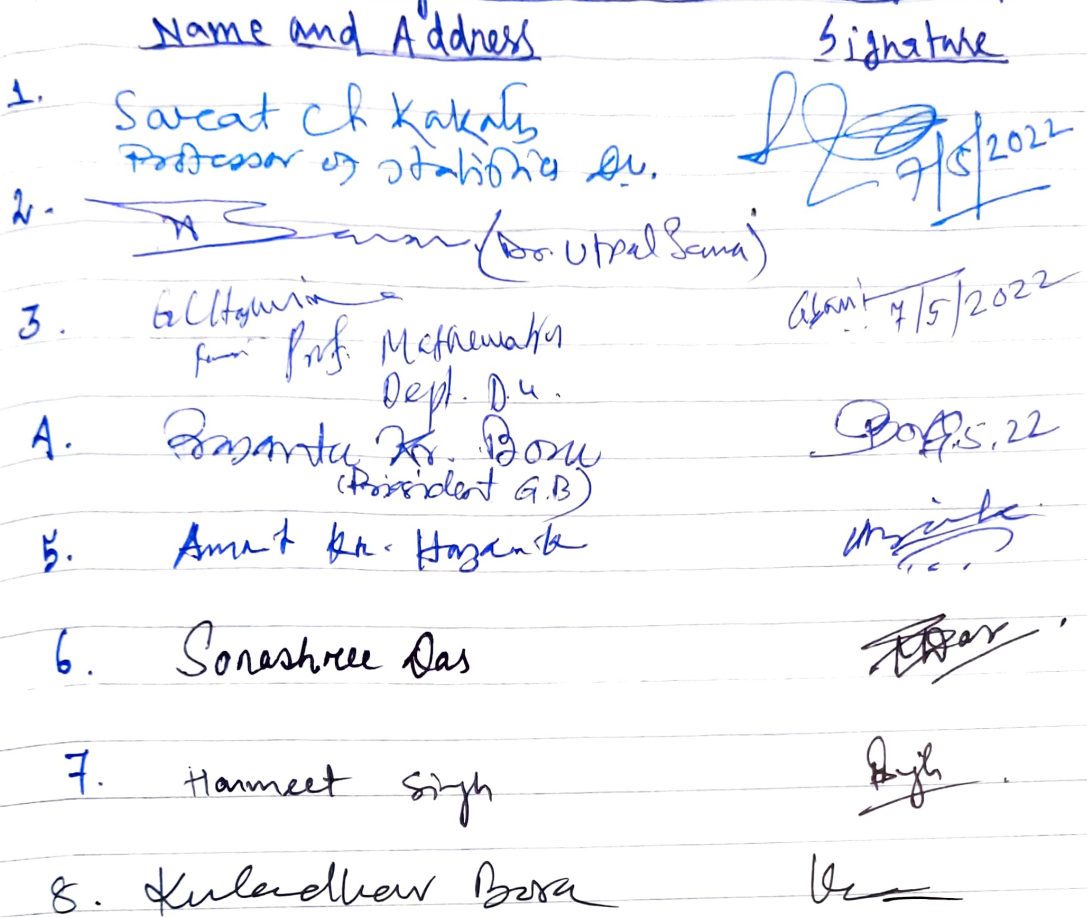 Name and Address Signature
1. Sarcat Ch Kakaty
Professor of Statistics Du. 7/5/2022
2. (Dr. Utpal Sarma)
3. 7/5/2022
Prof. Mathematics
Dept. D.U.
4. Basanta Kr. Bora 5.22
(President G.B)
5. Amrit Kr. Hazarika
6. Sonashree Das Das
7. Harmeet Singh
8. Kuladhar Bora